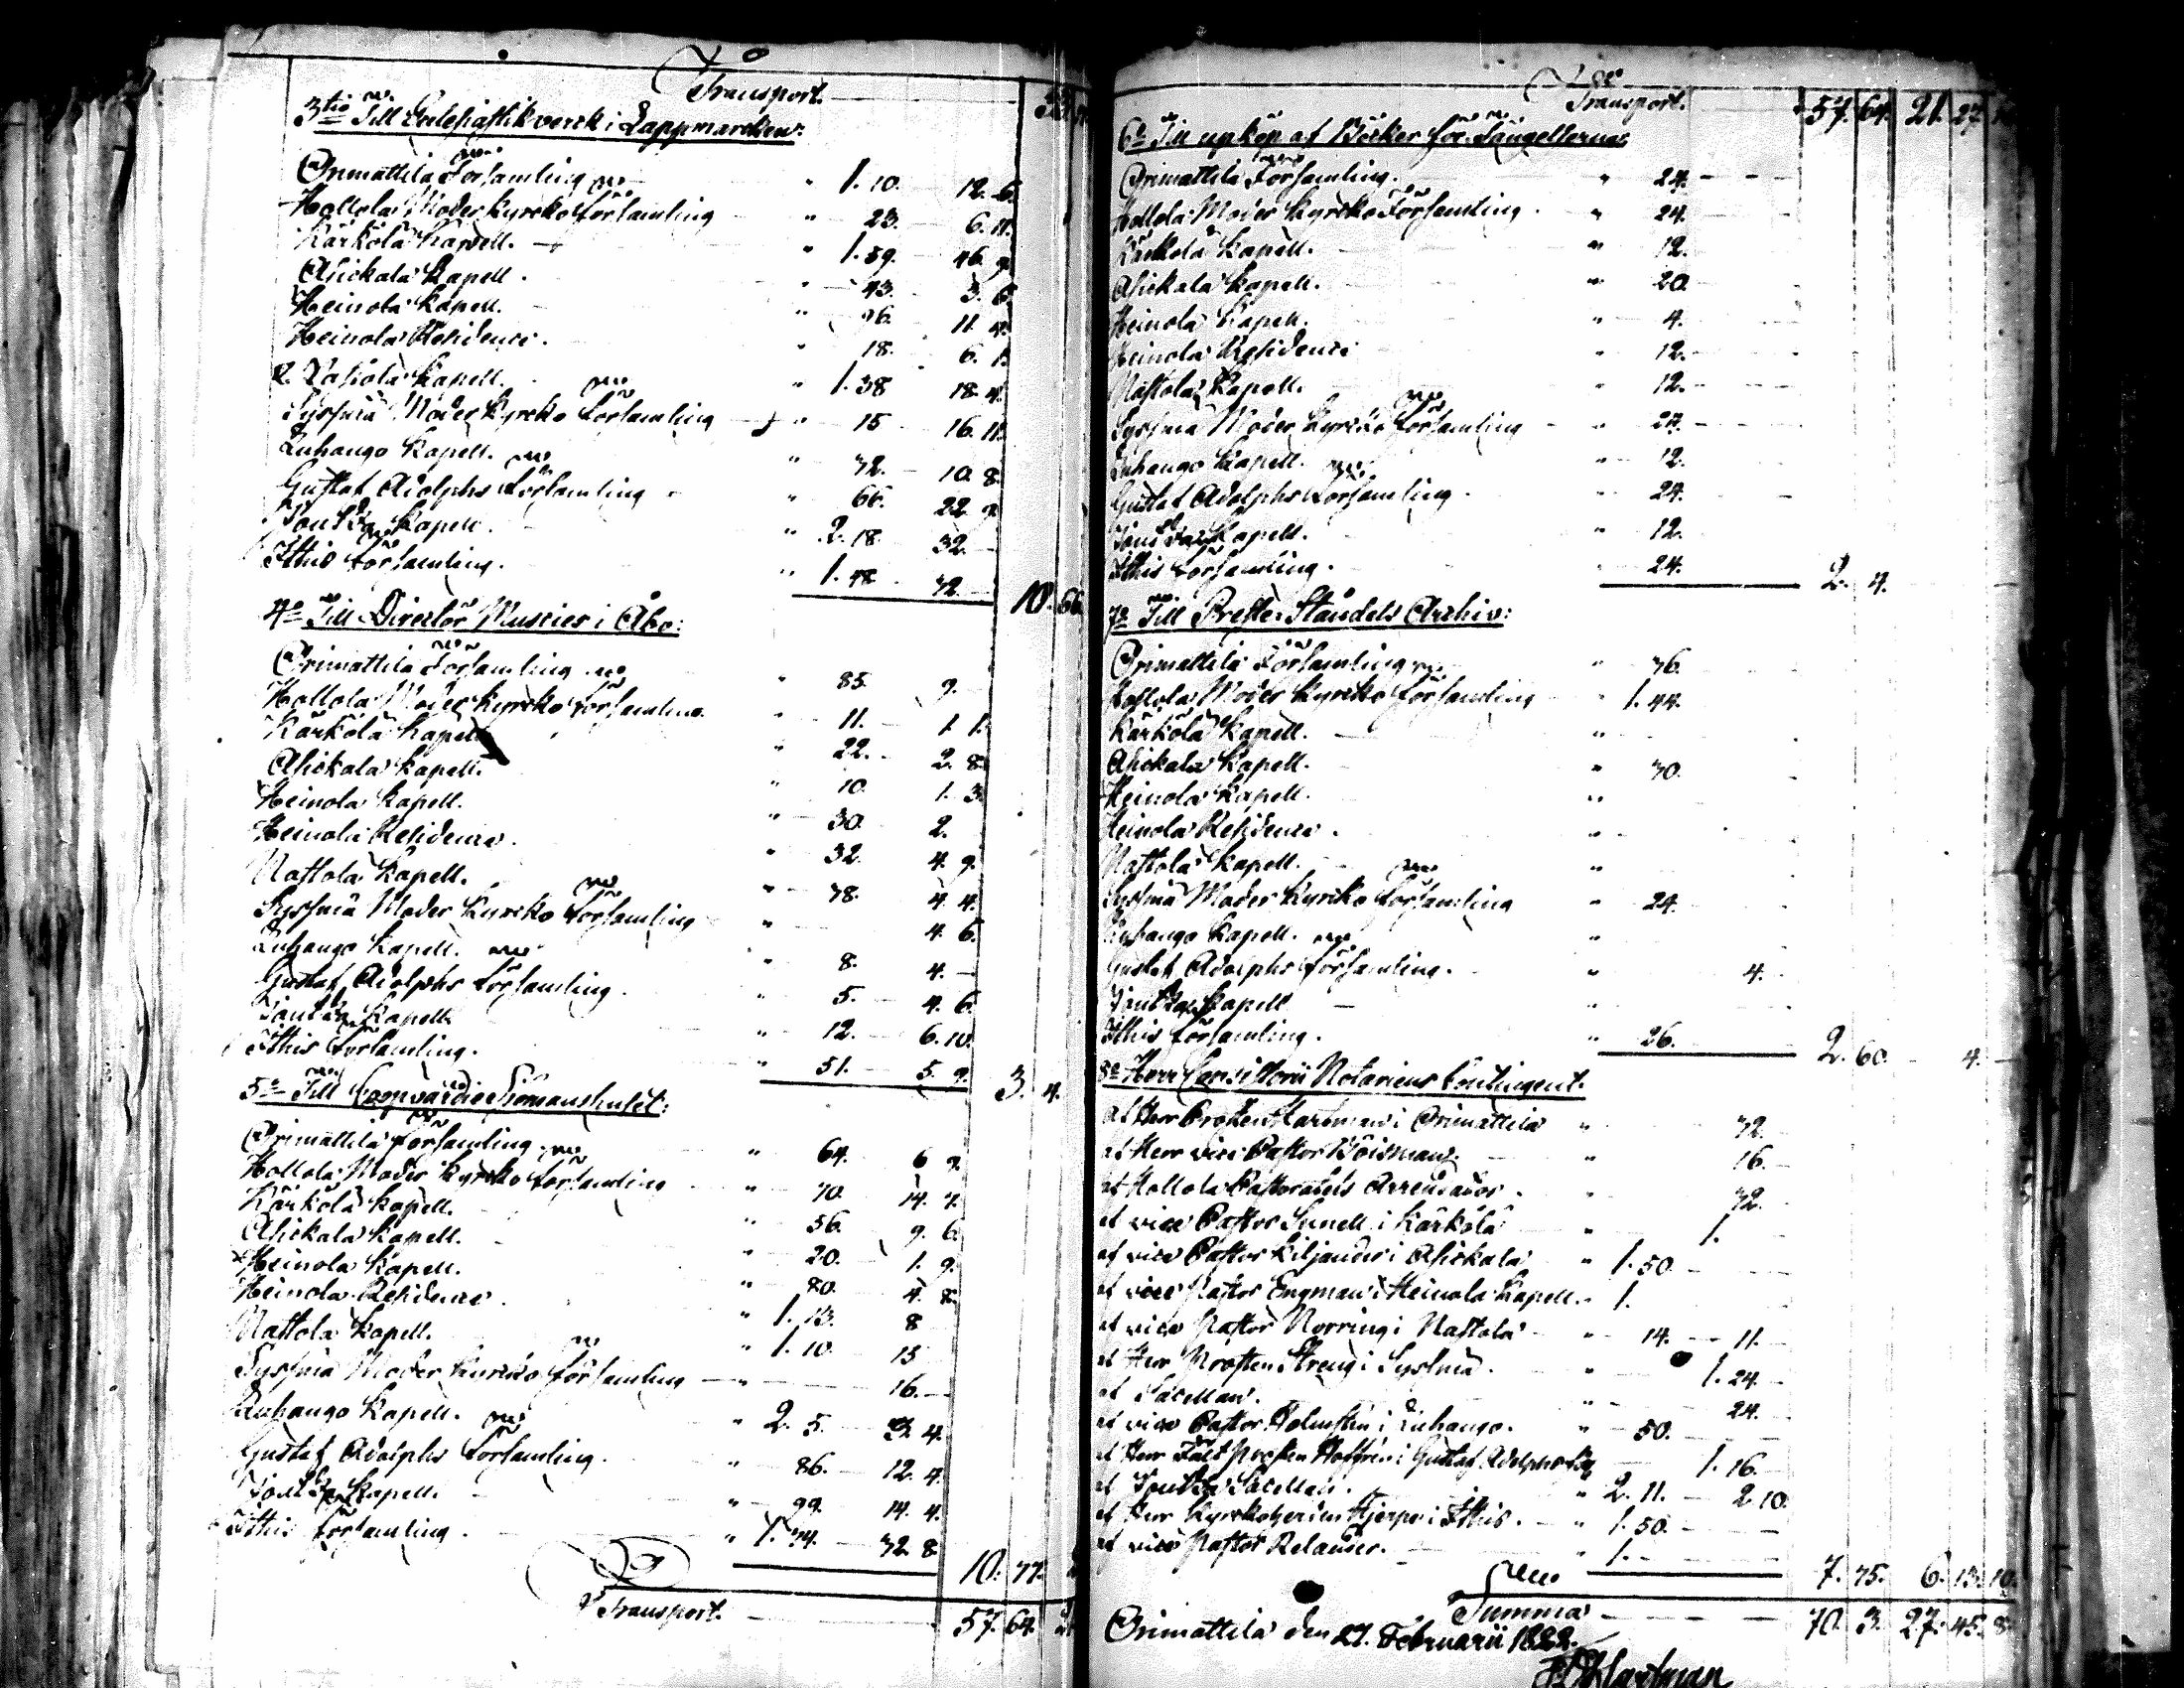 Transport.
3tio Till Ecclesiastikverck i Lappmarcken:
Orimattila Församling " 1. 10. 12. 6.
Hollola Moder Kyrcko Församling " 23. 6. 11.
Kärkölä Kapell. " 1. 59. 46. 9.
Asickala Kapell. " 43. 3. 6.
Heinola Kapell. " 11. 4.
Heinola Residence. " 18. 6. 1.
Kapell. " 1. 38 18. 4.
Syssmä Moder Kyrcko Församling " 15 16. 11.
Luhango Kapell. " 72. 10. 8.
Gustaf Adolphs Församling " 66. 22.
Kapell. " 2. 18. 32.
Ithis Församling. " 1. 72. 10. 66.
4o Till Director Musices i Åbo:
Orimattila Församling " 85. 9.
Hollola Moder Kyrcko Församling " 11. 1. 1.
Kärkölä Kapell " 22. 2. 8.
Asickala Kapell. " 10. 1. 3.
Heinola Kapell. " 30. 2.
Heinola Residence. " 32. 4. 9.
Nastola Kapell. " 78. 4. 4.
Syssmä Moder Kyrcko Församling " 4. 6.
Luhango Kapell. " 8. 4. —
Gustaf Adolphs Församling. " 5. 4. 6.
Kapell. " 12. 6. 10.
Ithis Församling. " 51. 5. 9. 3. 4.
5o Till Coopvaerdie Sjömanshuset:
Orimattila Församling " 64. 6 9.
Hollola Moder Kyrcko Församling " 70. 14. 7.
Kärkölä Kapell. " 56. 9. 6.
Asickala Kapell. " 20. 1. 9.
Heinola Kapell. " 80. 4. 8.
Heinola Residence. " 1. 13. 8
Nastola Kapell. " 1. 10. 13
Syssmä Moder Kyrcko Församling — " 16. —
Luhango Kapell. " 2. 5. 3. 4.
Gustaf Adolphs Församling. " 86. 12. 4.
Kapell. " 99. 14. 4.
Ithis Församling. " 1. 74. 72. 8. 10. 77.
Transport. 57. 64.
Transport. 57. 64. 21. 27.
6o Till upköp af Böcker för Fångellerna:
Orimattila Församling. " 24.
Hollola Moder Kyrcko Församling. " 24.
Kärkölä Kapell. " 12.
Asickala Kapell. " 20.
Heinola Kapell. " 4.
Heinola Residence " 12.
Nastola Kapell. " 12.
Syssmä Moder Kyrcko Församling " 24.
Luhango Kapell. " 12.
Gustaf Adolphs Församling. " 24.
Kapell. " 12.
Ithis Församling. " 24. 2. 4.
7o Till Preste-Ståndets Archiv:
Orimattila Församling " 76.
Hollola Moder Kyrcko Församling " 1. 44.
Kärkölä Kapell. "
Asickala Kapell. " 70.
Heinola Kapell. "
Heinola Residence. "
Nastola Kapell. "
Syssmä Moder Kyrcko Församling " 24.
Luhango Kapell. "
Gustaf Adolphs Församling. " 4.
Kapell "
Ithis Församling. " 26. 2. 60. 4. —
8o Herr Consistorii Notariens Contingent.
af Herr Prosten Hartman i Orimattila " 72.
af Herr vice Pastor Böisman. " 16.
af Hollola Pastoratets Arrendator. " 72.
af vice Pastor i Kärkölä " 1.
af vice Pastor Kiljander i Asickala " 1. 50.
af vice Pastor Engman i Heinola Kapell. " 1.
af vice Pastor Norring i Nastola " 14. 11.
af Herr Prosten Streng i Syssmä. " 1. 24.
af Sacellan. " 24.
af vice Pastor Holmstén i Luhango. " 50.
af Herr Fält Prosten Hoffrén i Gustaf Adolphs 1. 16.
af Sacellan. " 2. 11. 2. 10.
af Herr Kyrckoherden Hjerpe i Ithis. " 1. 50.
af vice Pastor Relander. " 1. 7. 75. 6. 13. 10.
Summa 70. 3. 27. 45. 8.
Orimattila den 27. Februarii 1822.
Hartman